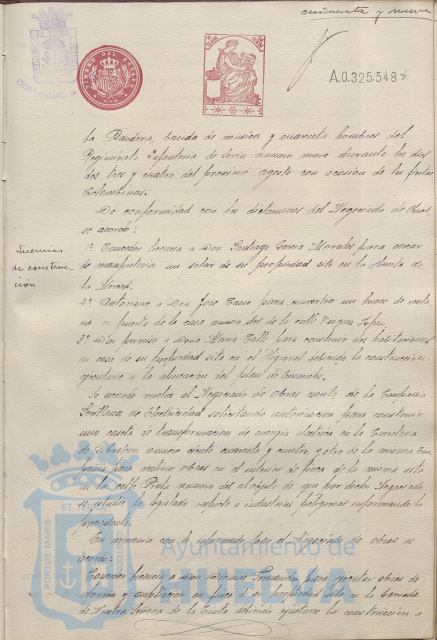 cincuenta y nueve
A.0.325.548
TIMBRE DEL ESTADO
la Bandera, banda de musica y cuarenta hombres del
Regimiento Infantería de Soria numero nueve durante los dias
dos tres y cuatro del proximo agosto con ocasion de las fiestas
Colombinas.
De conformidad con los dictamenes del Negociado de Obras
se acordó:
Licencias
de construc-
ción
1º Conceder licencia a Don Santiago Garcia Morales para cercar
de mamposteria un solar de su propiedad sito en la Huerta de
la Merced.
2º Autorizar a Don José para convertir un hueco de venta
na en puerta de la casa numero dos de la calle Vazquez Lopez.
3º Dar permiso a Doña Maria para construir dos habitaciones
en casa de su propiedad sita en el debiendo la construccion
a la alineacion del plan de Ensanche.
Se acordó vuelva al Negociado de Obras escrito de la Compañia
Sevillana de Electricidad solicitando autorizacion para construir
una caseta de transformacion de energia electrica en la Carretera
de Gibraleon numero ciento cuarenta y cuatro y otro de la misma Com
pañia para realizar obras en el interior de finca de la misma sita
en la calle Rabida numero dos al objeto de que por dicho Negociado
se estudie lo legislado respecto a industrias peligrosas informando lo
procedente.
En armonia con lo informado por el Negociado de Obras se
acordó:
Conceder licencia a Don Fernandez para ejecutar obras de
reforma y ampliacion en finca de su propiedad sita en la Barriada
de Nuestra Señora de la Cinta debiendo ajustarse la construccion a
PORTUS MARIS ET TERRAE CUSTODIA
Ayuntamiento de
HUELVA